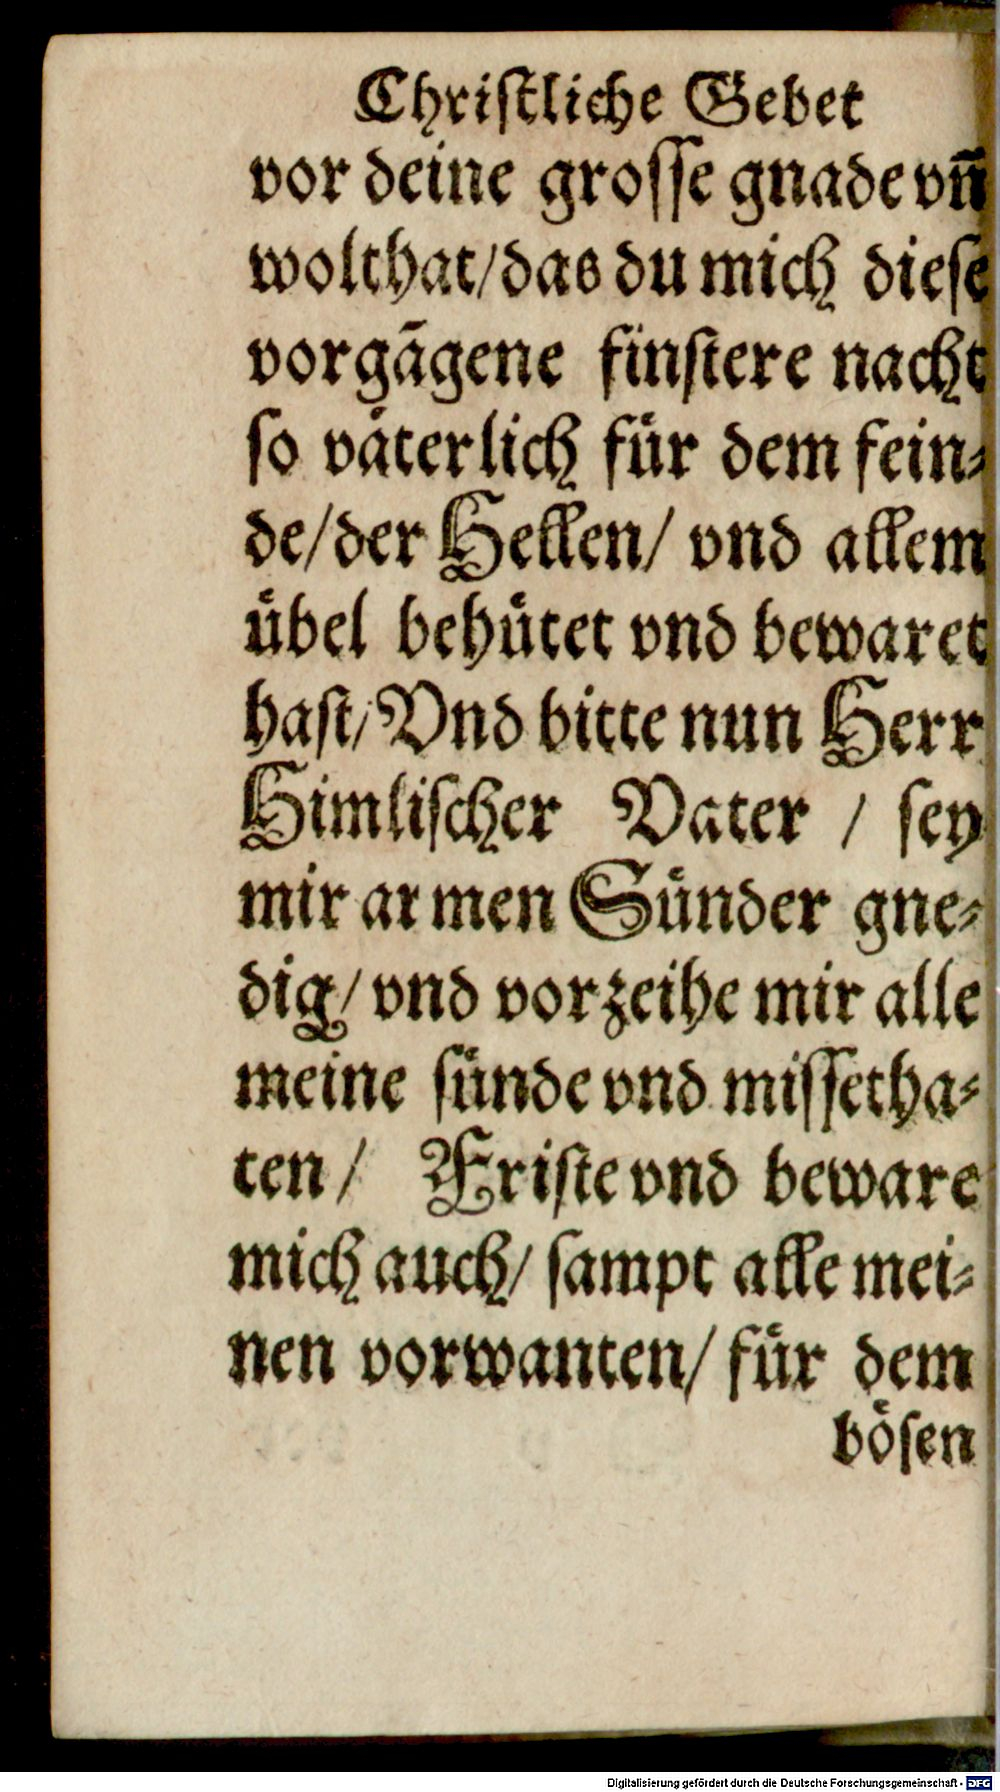 Christliche Gebet
vor deine grosse gnade vñ
wolthat/das du mich diese
vorgāgene finstere nacht
so väterlich für dem fein⸗
de/der Hellen/ vnd allem
übel behütet vnd bewaret
hast/Vnd bitte nun Herr
Himlischer Vater / sey
mir armen Sünder gne⸗
dig/ vnd vorzeihe mir alle
meine sünde vnd missetha⸗
ten/ Friste vnd beware
mich auch/ sampt alle mei⸗
nen vorwanten/ für dem
bösen
Digitalisierung gefördert durch die Deutsche Forschungsgemeinschaft - DFG